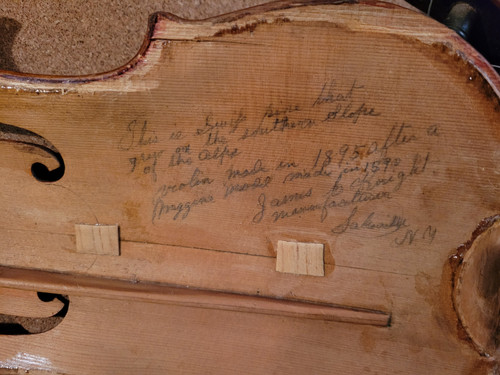 This is Swiss pine that
grew on the southern slope
of the alps
violin made in 1895 after a
Maggini model made in 1590
James E Knight
manufacturer
N Y